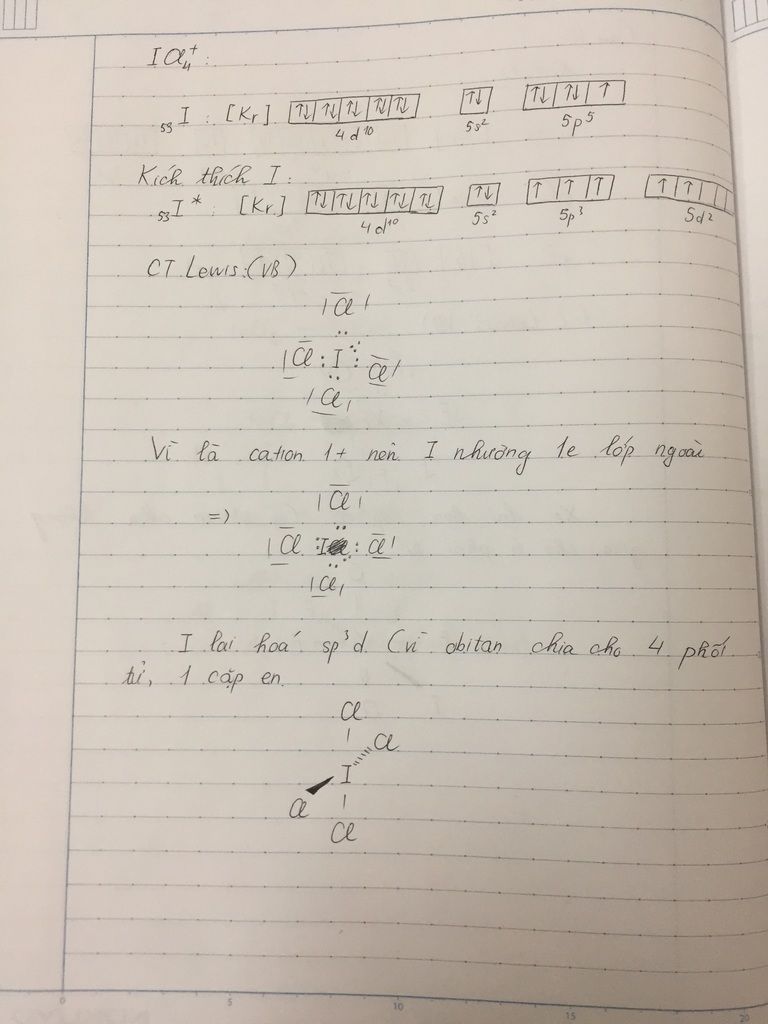 ICl₄⁺:
₅₃I : [Kr] ↑↓ ↑↓ ↑↓ ↑↓ ↑↓ ↑↓ ↑↓ ↑↓ ↑
4d¹⁰ 5s² 5p⁵
Kích thích I:
₅₃I* : [Kr] ↑↓ ↑↓ ↑↓ ↑↓ ↑↓ ↑↓ ↑ ↑ ↑ ↑ ↑
4d¹⁰ 5s² 5p³ 5d²
CT Lewis:(VB)
Cl
Cl : I : Cl
Cl
Vì là cation 1+ nên I nhường 1e lớp ngoài
=> Cl
Cl : I : Cl
Cl
I lai hoá sp³d (vì obitan chia cho 4 phối
tử, 1 cặp en
Cl
Cl
I
Cl
Cl
0 5 10 15 20